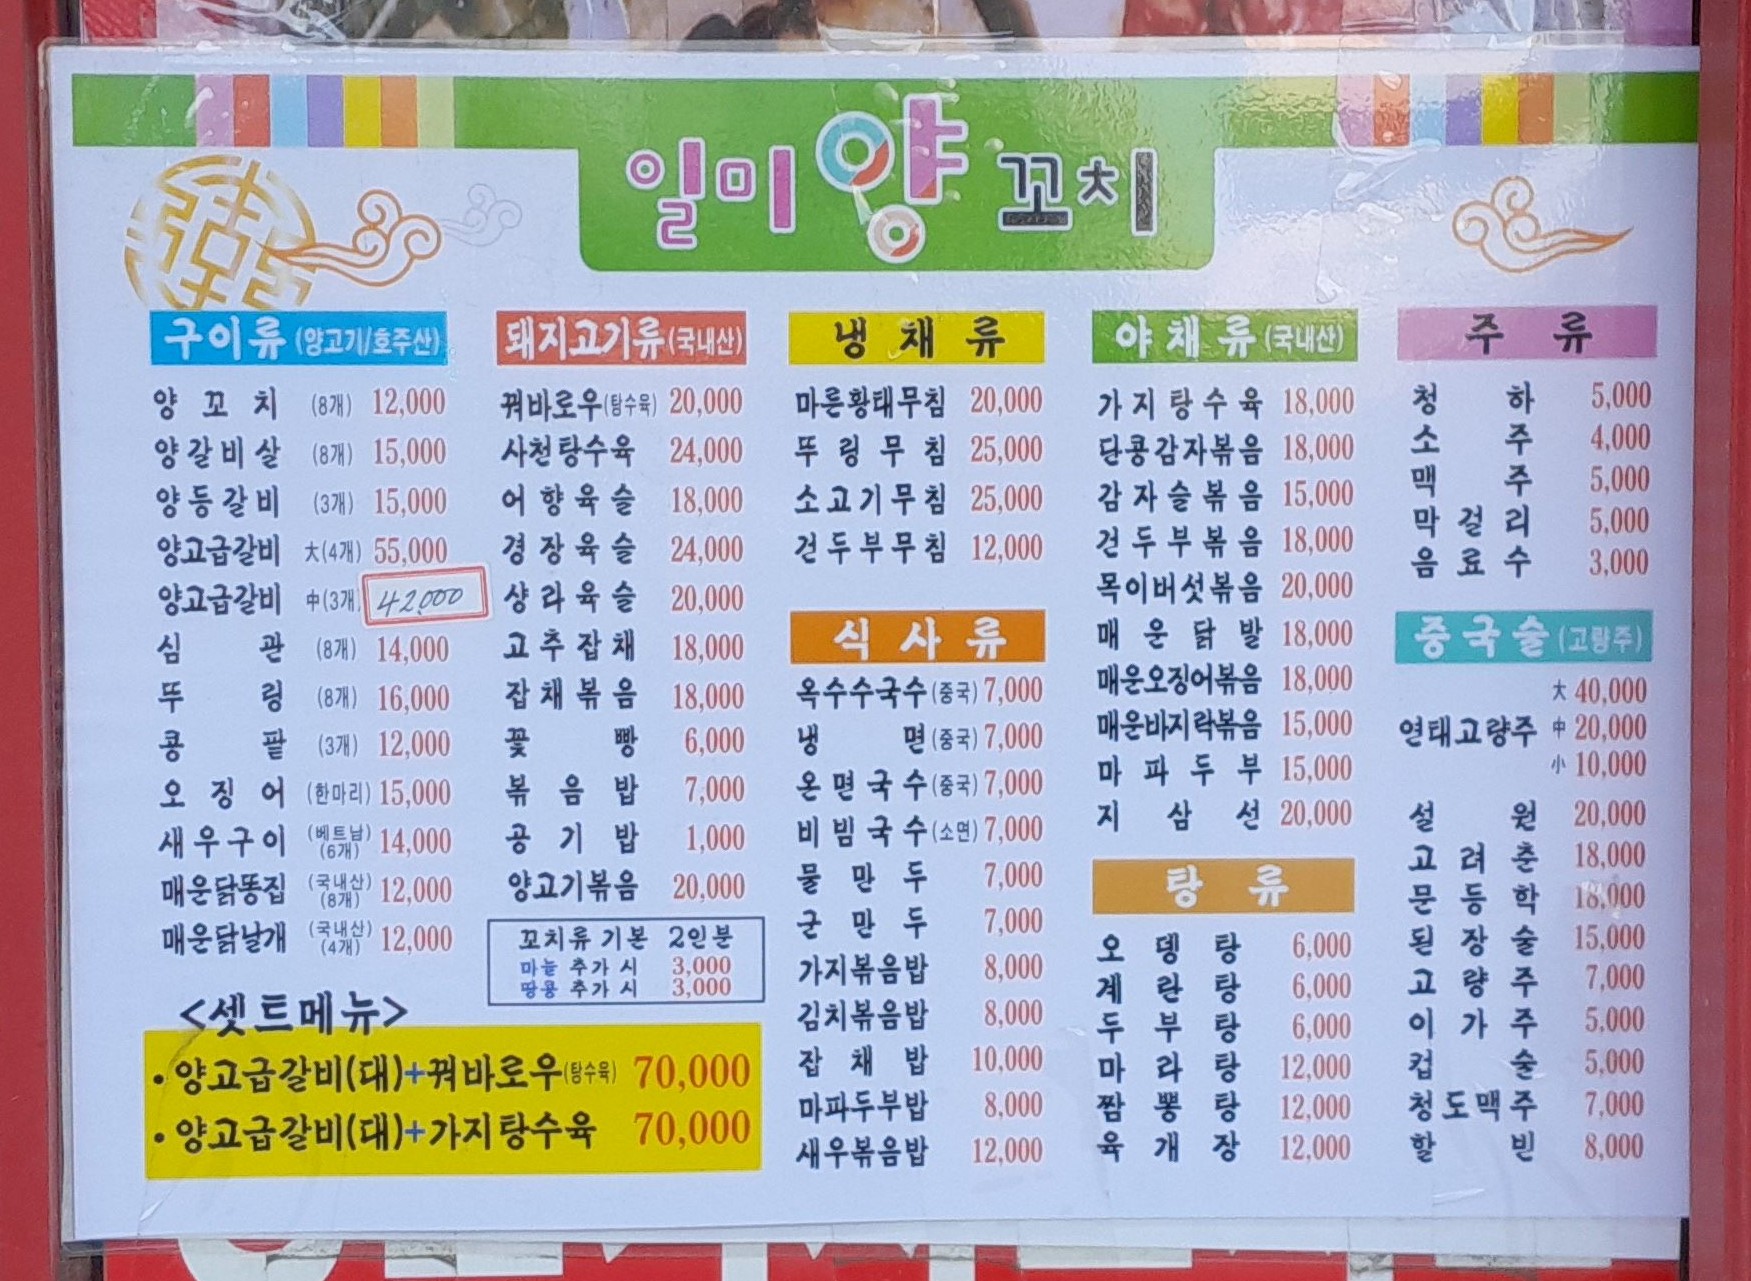 일미양꼬치
구이류 (양고기/호주산)
양꼬치 (8개) 12,000
양갈비살 (8개) 15,000
양등갈비 (3개) 15,000
양고급갈비 大(4개) 55,000
양고급갈비 中(3개) 42,000
심관 (8개) 14,000
뚜링 (8개) 16,000
콩팥 (3개) 12,000
오징어 (한마리) 15,000
새우구이 (베트남) (6개) 14,000
매운닭똥집 (국내산) (8개) 12,000
매운닭날개 (국내산) (4개) 12,000
<셋트메뉴>
• 양고급갈비(대)+꿔바로우(탕수육) 70,000
• 양고급갈비(대)+가지탕수육 70,000
돼지고기류 (국내산)
꿔바로우(탕수육) 20,000
사천탕수육 24,000
어향육슬 18,000
경장육슬 24,000
샹라육슬 20,000
고추잡채 18,000
잡채볶음 18,000
꽃빵 6,000
볶음밥 7,000
공기밥 1,000
양고기볶음 20,000
꼬치류 기본 2인분
마늘 추가 시 3,000
땅콩 추가 시 3,000
냉채류
마른황태무침 20,000
뚜링무침 25,000
소고기무침 25,000
건두부무침 12,000
식사류
옥수수국수 (중국) 7,000
냉면 (중국) 7,000
온면국수 (중국) 7,000
비빔국수 (소면) 7,000
물만두 7,000
군만두 7,000
가지볶음밥 8,000
김치볶음밥 8,000
잡채밥 10,000
마파두부밥 8,000
새우볶음밥 12,000
야채류 (국내산)
가지탕수육 18,000
단콩감자볶음 18,000
감자슬볶음 15,000
건두부볶음 18,000
목이버섯볶음 20,000
매운닭발 18,000
매운오징어볶음 18,000
매운바지락볶음 15,000
마파두부 15,000
지삼선 20,000
탕류
오뎅탕 6,000
계란탕 6,000
두부탕 6,000
마라탕 12,000
짬뽕탕 12,000
육개장 12,000
주류
청하 5,000
소주 4,000
맥주 5,000
막걸리 5,000
음료수 3,000
중국술 (고량주)
연태고량주 大 40,000
中 20,000
小 10,000
설원 20,000
고려춘 18,000
문등학 18,000
된장술 15,000
고량주 7,000
이가주 5,000
컵술 5,000
청도맥주 7,000
할빈 8,000